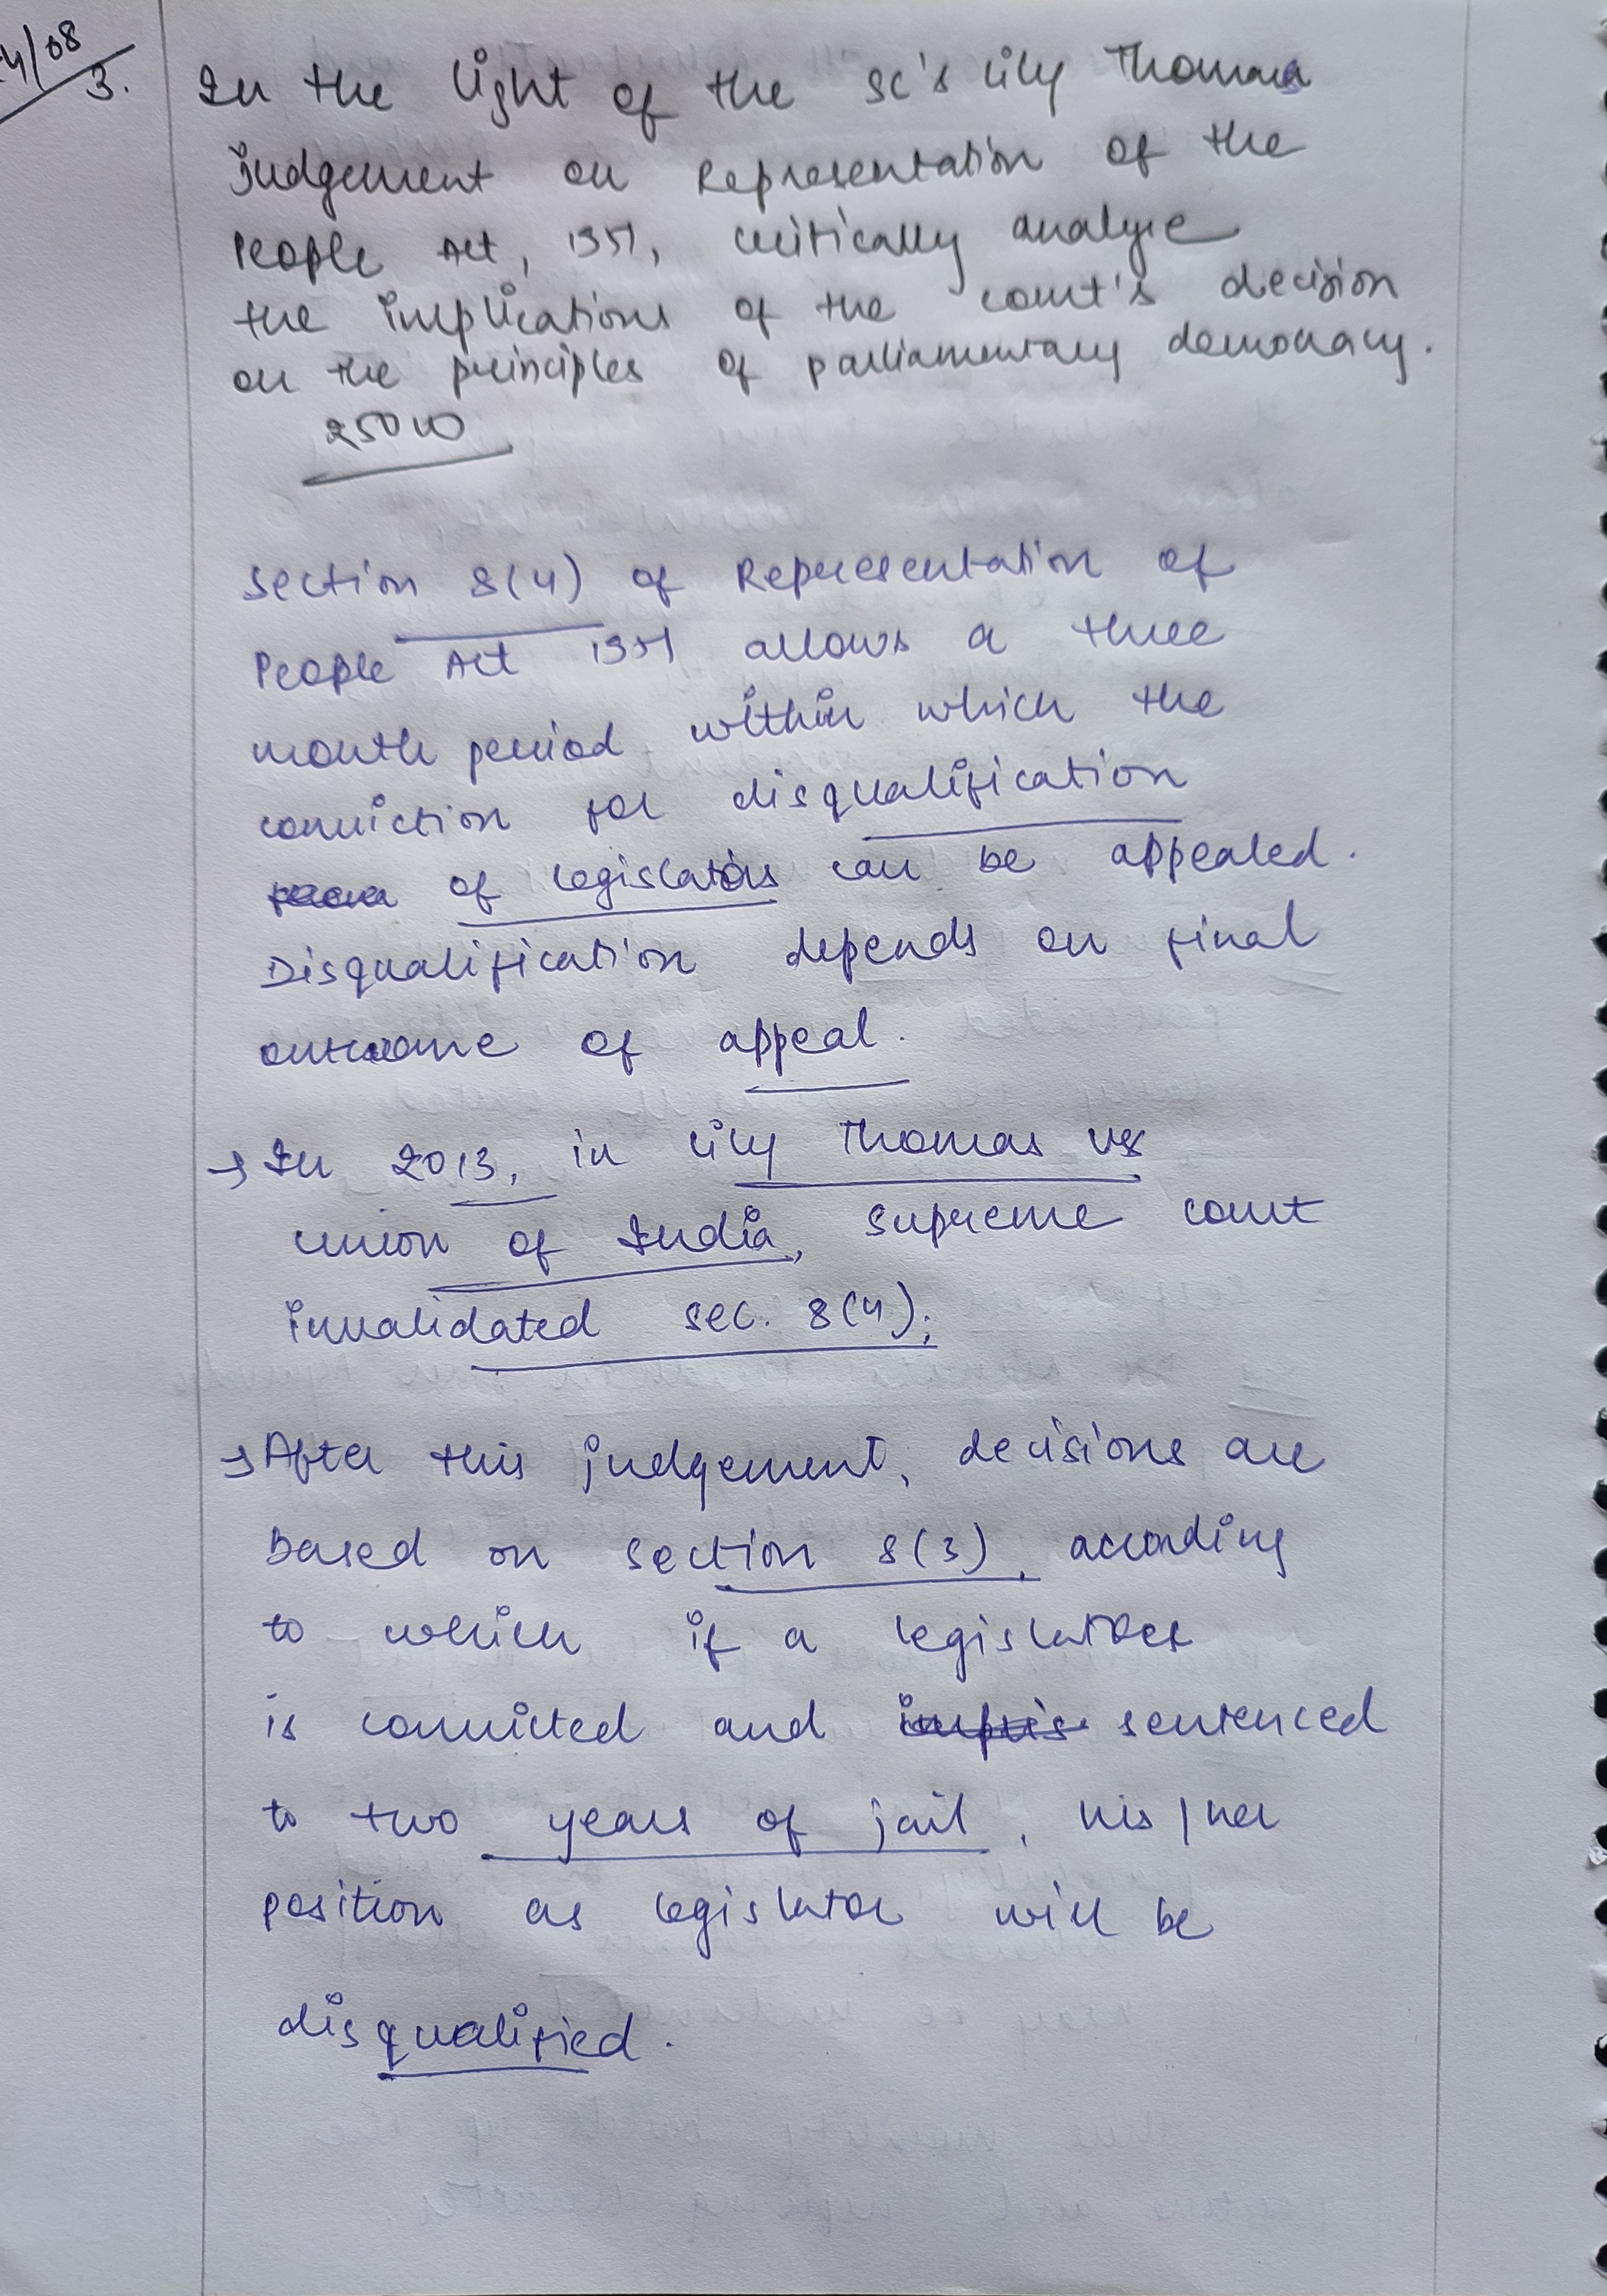 4/08
3. In the light of the SC's Lily Thomas
judgement on Representation of the
People Act, 1951, critically analyse
the implications of the court's decision
on the principles of parliamentary democracy.
250 W
Section 8(4) of Representation of
People Act 1951 allows a three
month period within which the
conviction for disqualification
of legislators can be appealed.
Disqualification depends on final
outcome of appeal.
→ In 2013, in Lily Thomas vs
Union of India, Supreme Court
invalidated sec. 8(4);
→ After this judgement, decisions are
based on section 8(3), according
to which if a legislator
is convicted and sentenced
to two years of jail, his/her
position as legislator will be
disqualified.